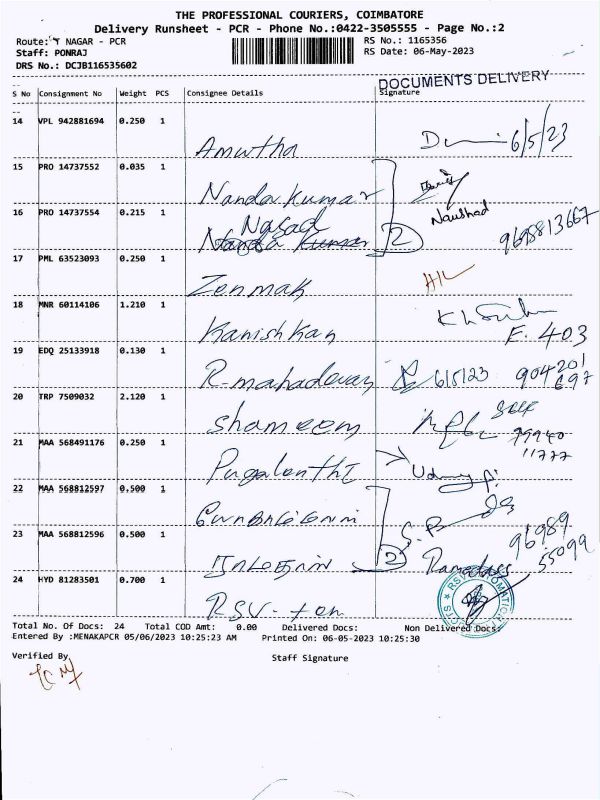 THE PROFESSIONAL COURIERS, COIMBATORE
Delivery Runsheet - PCR - Phone No.:0422-3505555 - Page No.:2
Route: T NAGAR - PCR
RS No.: 1165356
Staff: PONRAJ
RS Date: 06-May-2023
DRS No.: DCJB116535602
DOCUMENTS DELIVERY
S No Consignment No Weight PCS Consignee Details Signature
14 VPL 942881694 0.250 1
Amutha 6/5/23
15 PRO 14737552 0.035 1
Nanda Kumar
16 PRO 14737554 0.215 1
Naushad
Nasad
2 9698813667
17 PML 63523093 0.250 1
Zenmak
18 MNR 60114106 1.210 1
Kanishkan F. 403
19 EDQ 25133918 0.130 1
R-mahadevan 6/5/23 904201
697
20 TRP 7509032 2.120 1
Shameem Self
99940
11777
21 MAA 568491176 0.250 1
Pugalenthi
22 MAA 568812597 0.500 1
23 MAA 568812596 0.500 1
2 Ramadass 96989
55099
24 HYD 81283501 0.700 1
RSV-ton
Total No. Of Docs: 24 Total COD Amt: 0.00 Delivered Docs: Non Delivered Docs:
Entered By :MENAKAPCR 05/06/2023 10:25:23 AM Printed On: 06-05-2023 10:25:30
Verified By Staff Signature